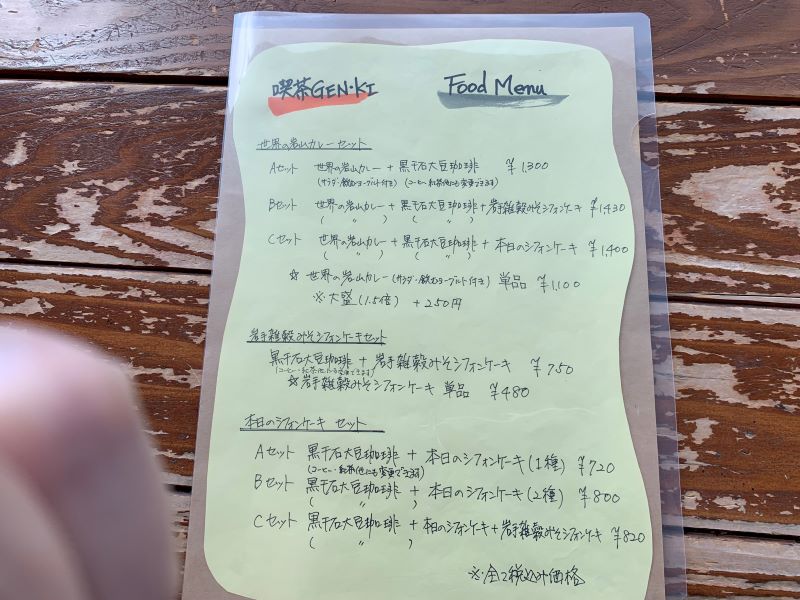 喫茶GEN・KI Food Menu
世界の岩山カレーセット
Aセット 世界の岩山カレー + 黒千石大豆珈琲 ¥1,300
(サラダ・飲むヨーグルト付き) (コーヒー・紅茶他にも変更できます)
Bセット 世界の岩山カレー + 黒千石大豆珈琲 + 岩手雑穀みそシフォンケーキ ¥1,430
( 〃 ) ( 〃 )
Cセット 世界の岩山カレー + 黒千石大豆珈琲 + 本日のシフォンケーキ ¥1,400
( 〃 ) ( 〃 )
☆ 世界の岩山カレー (サラダ・飲むヨーグルト付き) 単品 ¥1,100
※大盛 (1.5倍) +250円
岩手雑穀みそシフォンケーキセット
黒千石大豆珈琲 + 岩手雑穀みそシフォンケーキ ¥750
(コーヒー・紅茶他にも変更できます)
☆岩手雑穀みそシフォンケーキ 単品 ¥480
本日のシフォンケーキ セット
Aセット 黒千石大豆珈琲 + 本日のシフォンケーキ (1種) ¥720
(コーヒー・紅茶他にも変更できます)
Bセット 黒千石大豆珈琲 + 本日のシフォンケーキ (2種) ¥800
( 〃 )
Cセット 黒千石大豆珈琲 + 本日のシフォンケーキ + 岩手雑穀みそシフォンケーキ ¥820
( 〃 )
※全て税込み価格